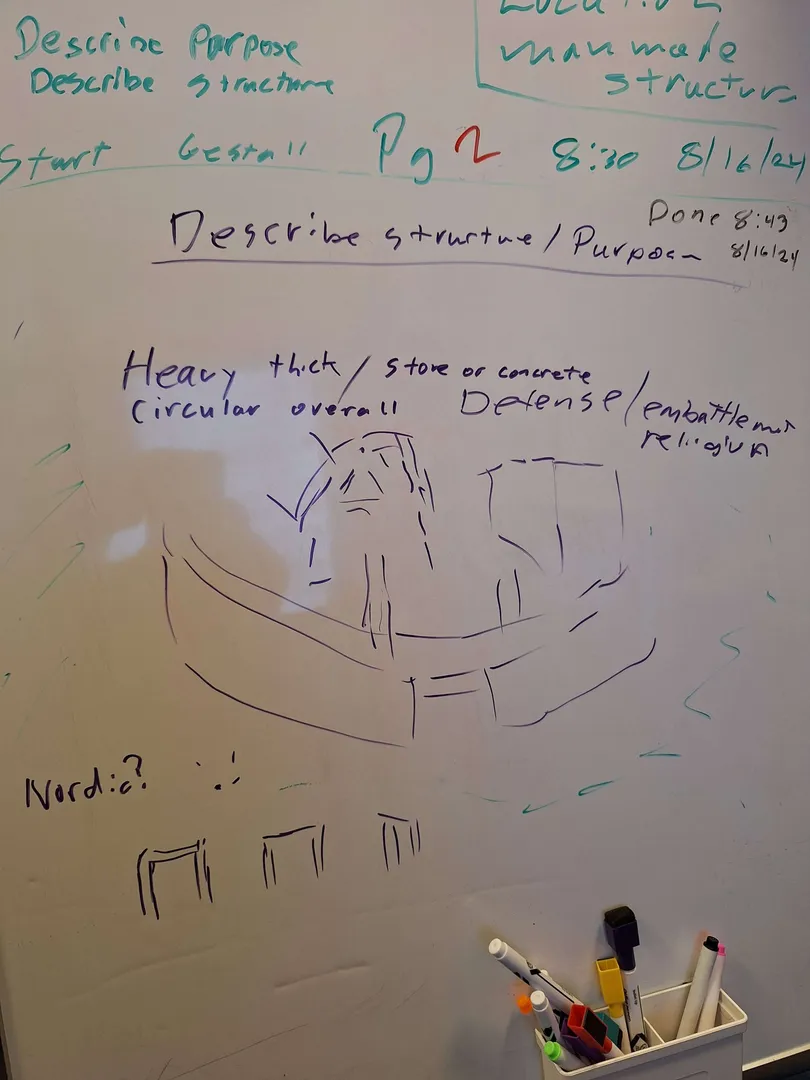 Describe Purpose
Describe structure
manmade
structure
Start Gestalt Pg 2 8:30 8/16/24
Done 8:43
8/16/24
Describe structure / Purpose
Heavy thick / stone or concrete
circular overall Defense / embattlement
religion
Nordic?